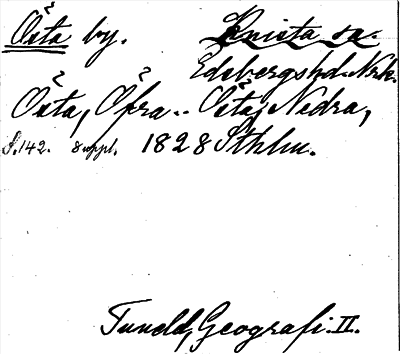 Östa by. Knista sn.
Edsbergshd. Nrk.
Östa, Öfra.. Östa, Nedra,
S. 142. 8 uppl. 1828 Sthlm.
Tuneld, Geografi. II.